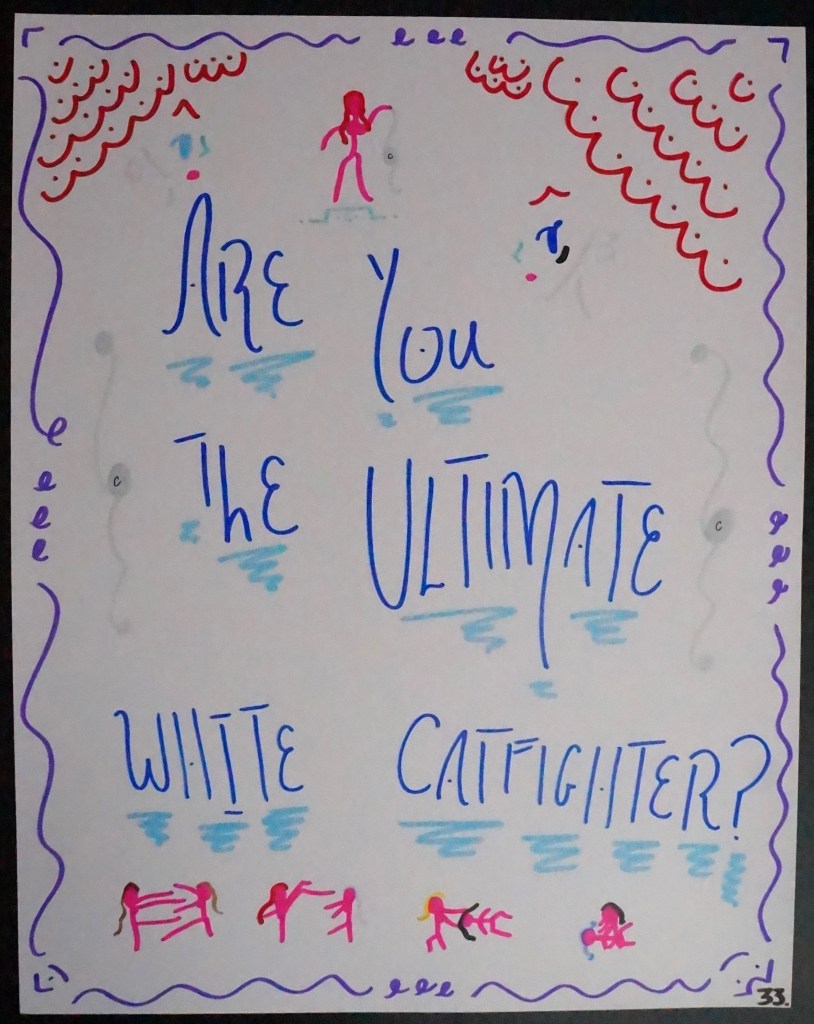 ARE YOU
THE ULTIMATE
WHITE CATFIGHTER?
33.